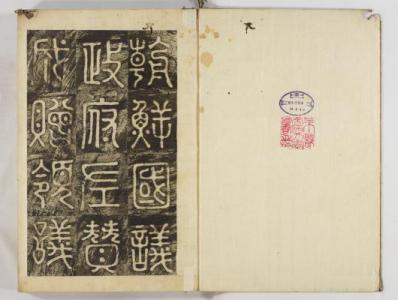 朝鮮國議
政府左贊
成贈領議